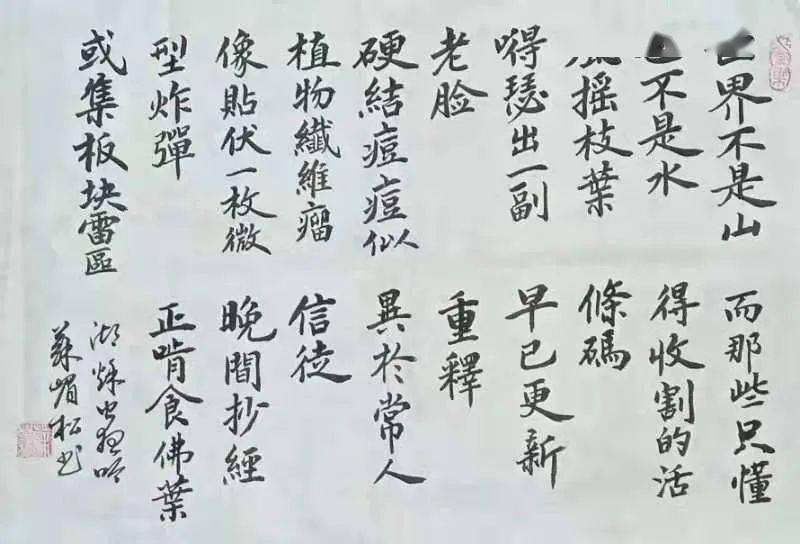 世界不是山
不是水
摇枝葉
嘚瑟出一副
老脸
硬結痘痘似
植物纖維瘤
像貼伏一枚微
型炸彈
或集板块雷區
而那些只懂
得收割的活
條碼
早已更新
重釋
異於常人
信徒
晚間抄經
正啃食佛葉
湖 吟
蘇嵋松书